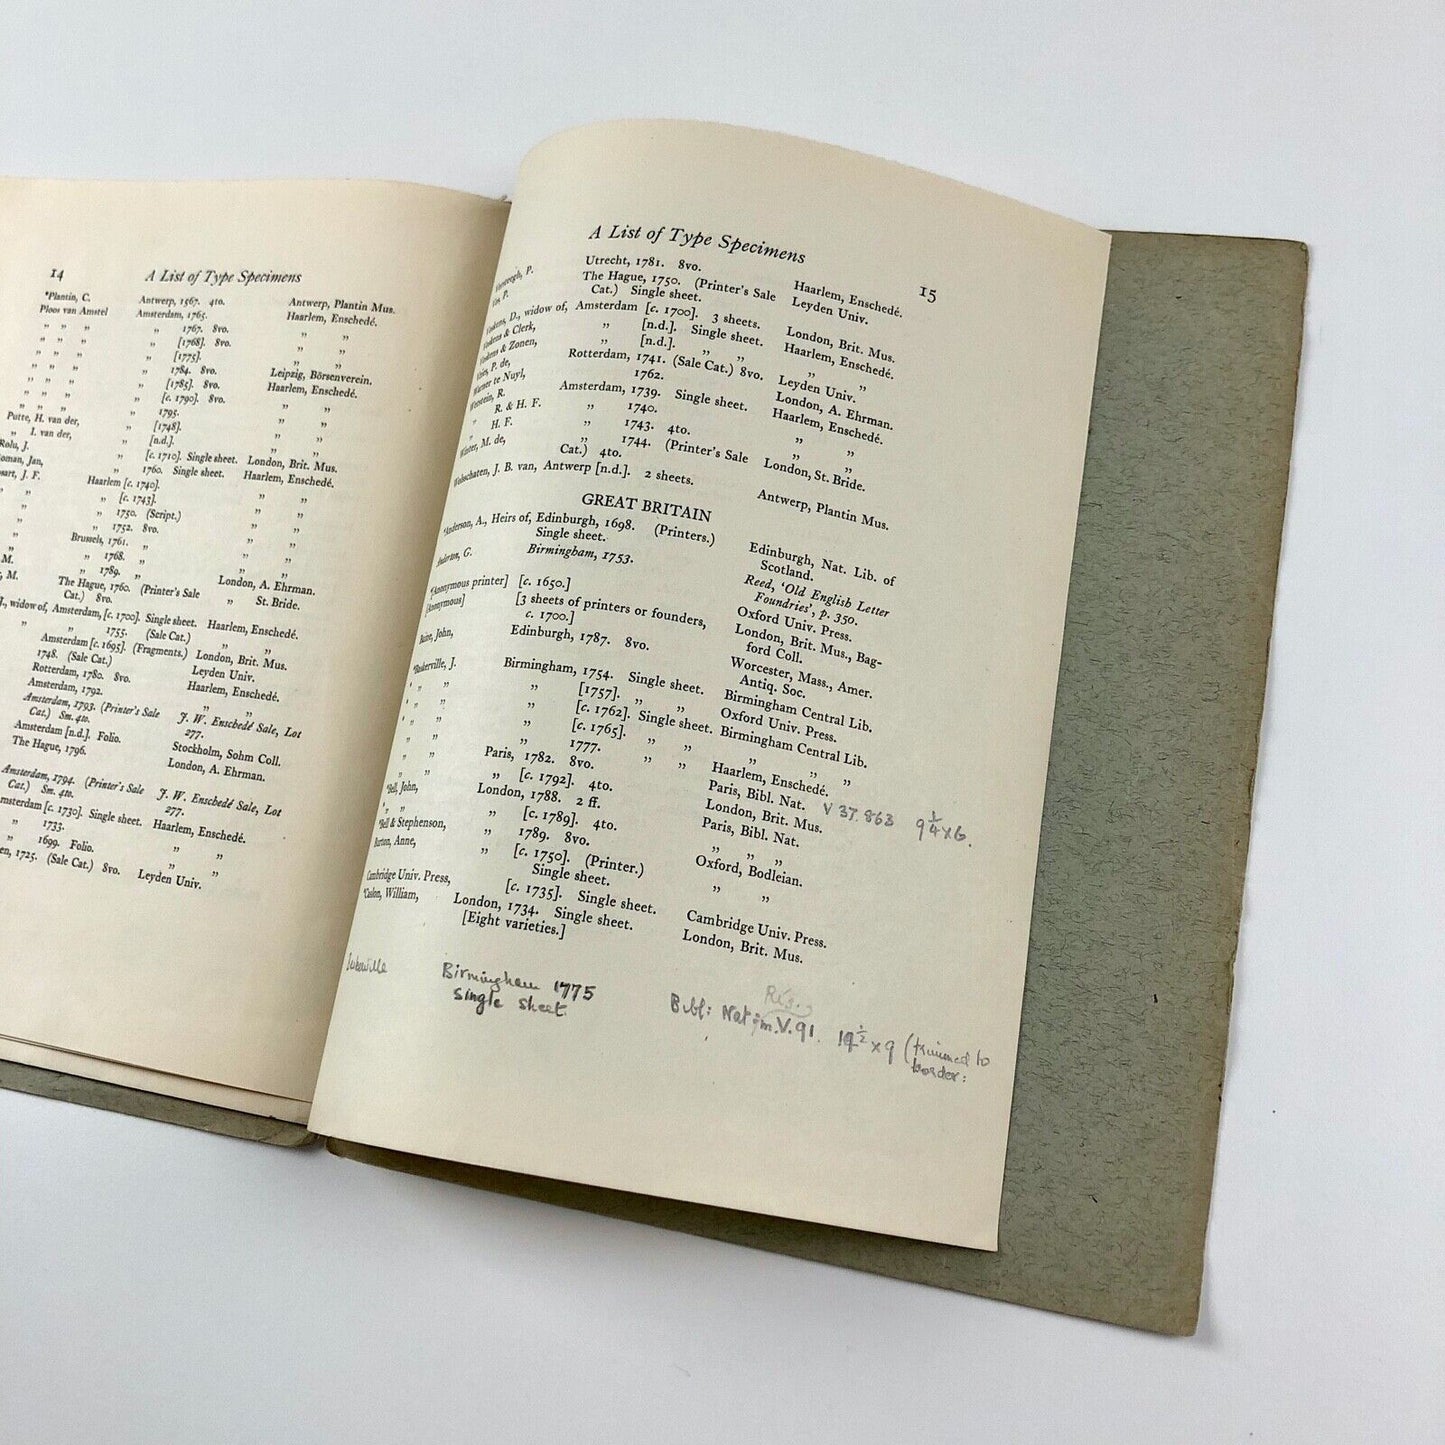 14
A List of Type Specimens
*Plantin, C. Antwerp, 1567. 4to. Antwerp, Plantin Mus.
Ploos van Amstel Amsterdam, 1765. Haarlem, Enschedé.
„ „ „ „ 1767. 8vo. „ „
„ „ „ „ [1768]. 8vo. „ „
„ „ „ „ [1775]. „ „
„ „ „ „ 1784. 8vo. Leipzig, Börsenverein.
„ „ „ „ [1785]. 8vo. Haarlem, Enschedé.
„ „ „ „ [c. 1790]. 8vo. „ „
„ „ „ „ 1795. „ „
Putte, H. van der, „ [1748]. „ „
„ I. van der, „ [n.d.]. „ „
Rolu, J. „ [c. 1710]. Single sheet. London, Brit. Mus.
oman, Jan, „ 1760. Single sheet. Haarlem, Enschedé.
sart, J. F. Haarlem [c. 1740]. „ „
„ „ [c. 1743]. „ „
„ „ 1750. (Script.) „ „
„ „ 1752. 8vo. „ „
„ Brussels, 1761. „ „ „
M. „ 1768. „ „
„ 1789. „ „ „
M. The Hague, 1760. (Printer's Sale London, A. Ehrman.
Cat.) 8vo. „ St. Bride.
widow of, Amsterdam, [c. 1700]. Single sheet. Haarlem, Enschedé.
„ „ 1755. (Sale Cat.) „ „
Amsterdam [c. 1695]. (Fragments.) London, Brit. Mus.
1748. (Sale Cat.) Leyden Univ.
Rotterdam, 1780. 8vo. Haarlem, Enschedé.
Amsterdam, 1792. „ „
Amsterdam, 1793. (Printer's Sale J. W. Enschedé Sale, Lot
Cat.) Sm. 4to. 277.
Amsterdam [n.d.]. Folio. Stockholm, Sohm Coll.
The Hague, 1796. London, A. Ehrman.
Amsterdam, 1794. (Printer's Sale J. W. Enschedé Sale, Lot
Cat.) Sm. 4to. 277.
msterdam [c. 1730]. Single sheet. Haarlem, Enschedé.
„ 1733. „ „
„ 1699. Folio. „ „
en, 1725. (Sale Cat.) 8vo. Leyden Univ.
A List of Type Specimens
15
P. Utrecht, 1781. 8vo. Haarlem, Enschedé.
P. The Hague, 1750. (Printer's Sale Leyden Univ.
Cat.) Single sheet.
Voskens, D., widow of, Amsterdam [c. 1700]. 3 sheets. London, Brit. Mus.
Voskens & Clerk, „ [n.d.]. Single sheet. Haarlem, Enschedé.
Voskens & Zonen, „ [n.d.]. „ „ „ „
Vries, P. de, Rotterdam, 1741. (Sale Cat.) 8vo. Leyden Univ.
Warner te Nuyl, 1762. London, A. Ehrman.
Wetstein, R. Amsterdam, 1739. Single sheet. Haarlem, Enschedé.
„ R. & H. F. „ 1740. „ „
„ H. F. „ 1743. 4to. „ „
Winter, M. de, „ 1744. (Printer's Sale London, St. Bride.
Cat.) 4to.
Wolschaten, J. B. van, Antwerp [n.d.]. 2 sheets. Antwerp, Plantin Mus.
GREAT BRITAIN
*Anderson, A., Heirs of, Edinburgh, 1698. (Printers.) Edinburgh, Nat. Lib. of
Single sheet. Scotland.
Anderton, G. Birmingham, 1753. Reed, 'Old English Letter
Foundries', p. 350.
*[Anonymous printer] [c. 1650.] Oxford Univ. Press.
[Anonymous] [3 sheets of printers or founders, London, Brit. Mus., Bag-
c. 1700.] ford Coll.
Baine, John, Edinburgh, 1787. 8vo. Worcester, Mass., Amer.
Antiq. Soc.
*Baskerville, J. Birmingham, 1754. Single sheet. Birmingham Central Lib.
* „ „ „ [1757]. „ „ Oxford Univ. Press.
* „ „ „ [c. 1762]. Single sheet. Birmingham Central Lib.
* „ „ „ [c. 1765]. „ „ „ „ „
„ „ „ 1777. „ „ Haarlem, Enschedé.
„ „ Paris, 1782. 8vo. Paris, Bibl. Nat. V 37.863 9 1/4 x 6.
„ „ „ [c. 1792]. 4to. London, Brit. Mus.
*Bell, John, London, 1788. 2 ff. Paris, Bibl. Nat.
* „ „ „ [c. 1789]. 4to. „ „ „
*Bell & Stephenson, „ 1789. 8vo. Oxford, Bodleian.
Burton, Anne, „ [c. 1750]. (Printer.) „ „
Single sheet.
Cambridge Univ. Press, [c. 1735]. Single sheet. Cambridge Univ. Press.
*Caslon, William, London, 1734. Single sheet. London, Brit. Mus.
[Eight varieties.]
Birmingham 1775
Single sheet.
Rés.
Bibl: Nat V.91. 14 1/2 x 9 (trimmed to
border: